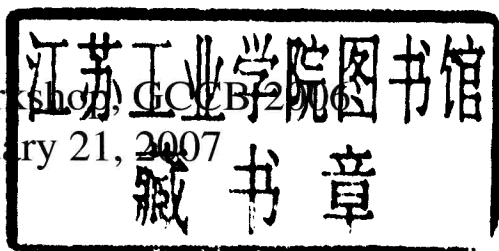 江苏工业学院图书馆
rkshop, GCCB 2006
ry 21, 2007
藏书章